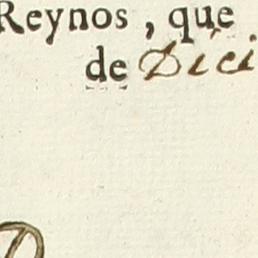 Reynos, que
de Dici